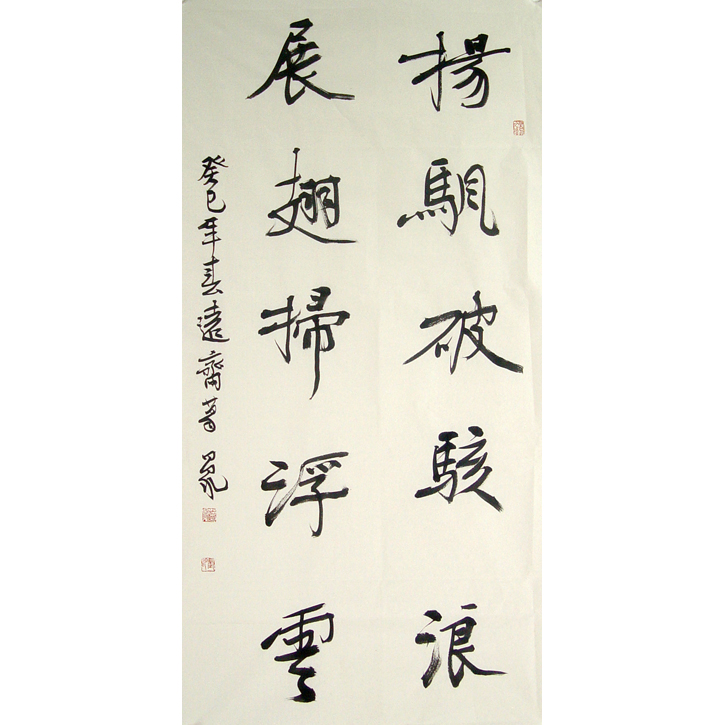 揚颿破駭浪
展翅掃浮雲
癸巳年春遠齋